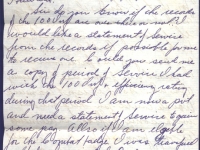 do you know if the records
of the 100th are
would like a statement of Service
from the records if possible for me
to receive one. Could you send me
a copy of period of Service I had
with the 100th & efficiency rating
during that period. I am now a
and need a statement of Service
some pay. Also if I am eligible
for the Badge I was